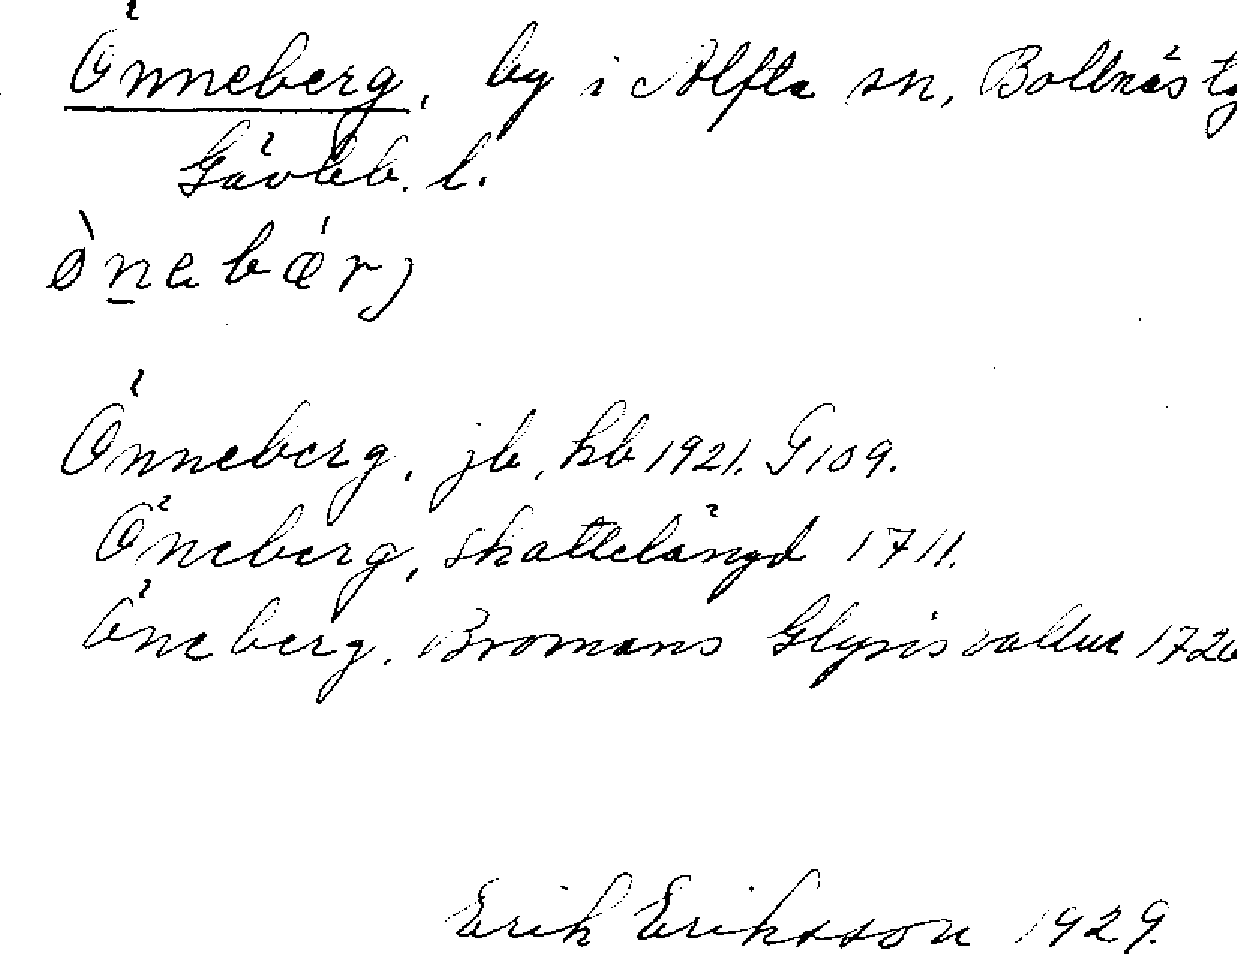 Önneberg, by i Alfta sn, Bollnäs tg
Gävleb. l.
ònebǽrj
Önneberg, jb, kb 1921. G 109.
Öneberg, skattelängd 1711.
Öneberg, Bromans Glysisvallur 1726
Erik Eriksson 1929.